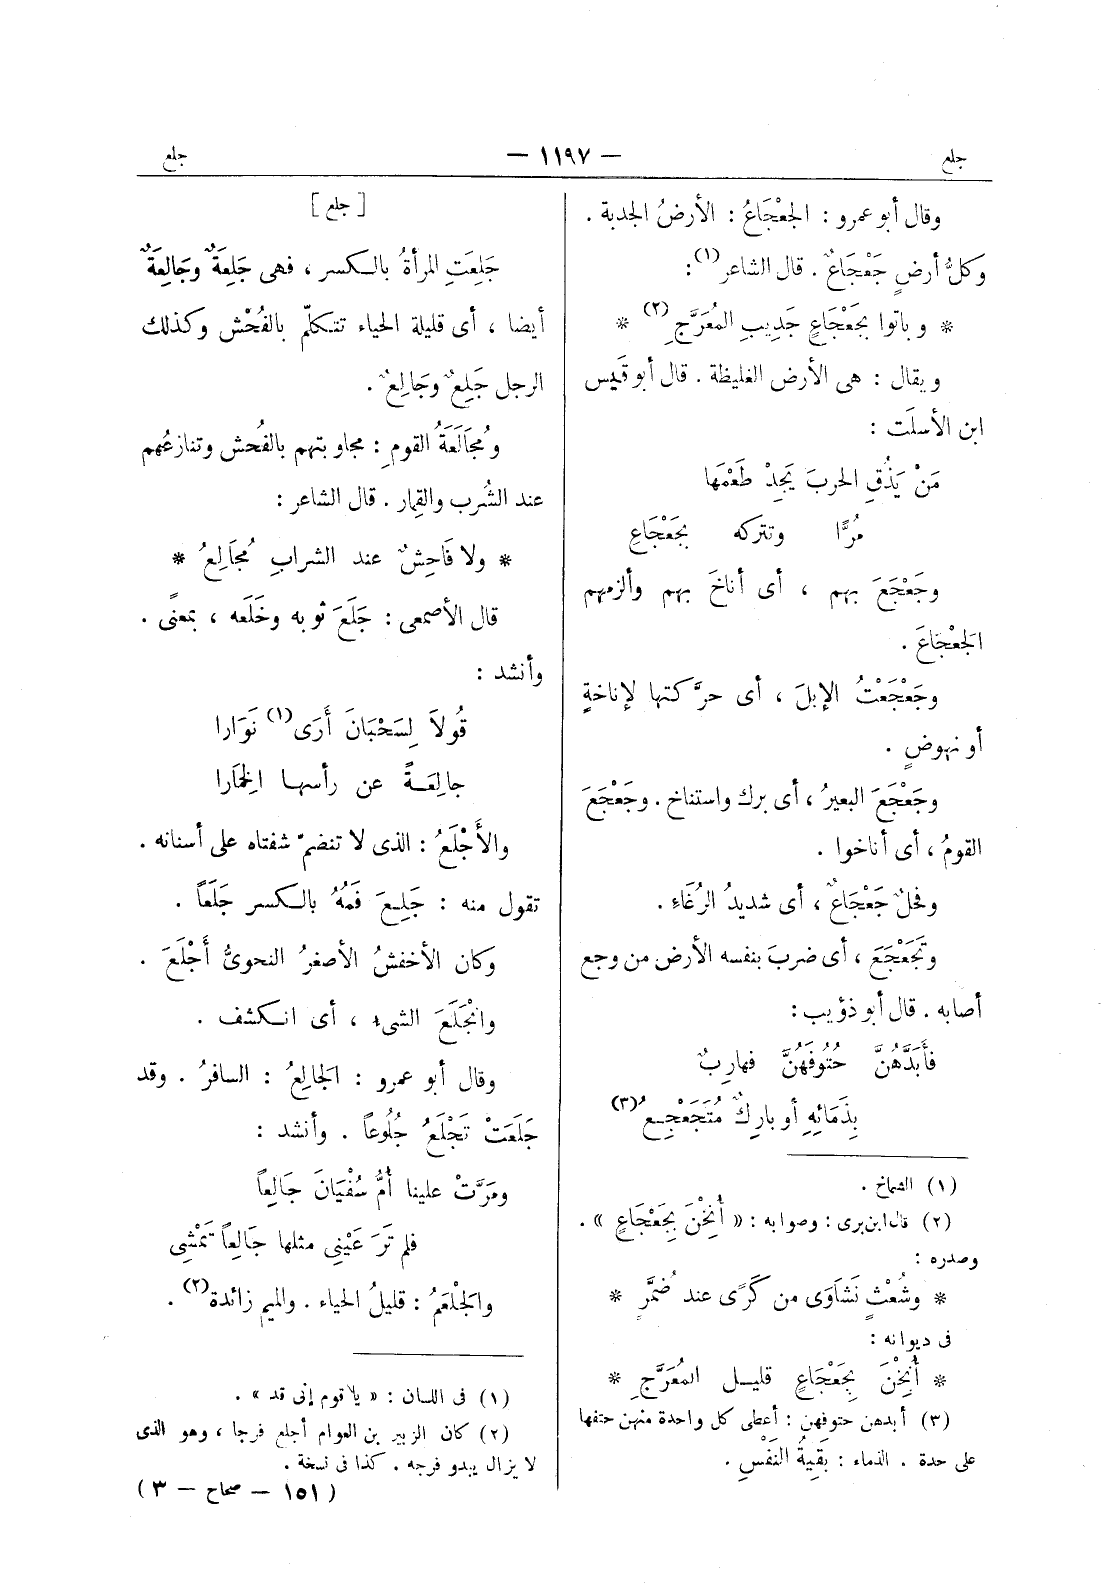 جلع
— ١١٩٧ —
جلع
وقال أبو عمرو : الجَعْجَاعُ : الأرضُ الجدبة .
وكلُّ أرضٍ جَعْجَاعٌ . قال الشاعر(١) :
* وباتوا بجَعْجَاعٍ جَدِيبِ المُعَرَّجِ(٢) *
ويقال : هى الأرض الغليظة . قال أبو قَيس
ابن الأسلَت :
مَنْ يَذُقِ الحربَ يَجِدْ طَعْمَها
مُرًّا وتتركه بجَعْجَاعِ
وجَعْجَعَ بهم ، أى أناخَ بهم وألزمهم
الجَعْجَاعَ .
وجَعْجَعْتُ الإبلَ ، أى حرَّكتها لإناخةٍ
أو نهوضٍ .
وجَعْجَعَ البعيرُ ، أى برك واستناخ . وجَعْجَعَ
القومُ ، أى أناخوا .
وفحلٌ جَعْجَاعٌ ، أى شديدُ الرُغَاءِ .
وتَجَعْجَعَ ، أى ضربَ بنفسه الأرض من وجع
أصابه . قال أبو ذؤيب :
فأَبَدَّهُنَّ حُتُوفَهُنَّ فهارِبٌ
بِذَمَائِهِ أو بارِكٌ مُتَجَعْجِعُ(٣)
(١) الشماخ .
(٢) قال ابن برى : وصوابه : « أُنِخْنَ بِجَعْجَاعٍ » .
وصدره :
* وشُعْثٍ نَشَاوَى من كَرًى عند ضُمَّرٍ *
فى ديوانه :
* أُنِخْنَ بِجَعْجَاعٍ قليــل المُعَرَّجِ *
(٣) أبدهن حتوفهن : أعطى كل واحدة منهن حتفها
على حدة . الذماء : بَقِيةُ النَفْسِ .
[ جلع ]
جَلِعَتِ المرأةُ بالكسر ، فهى جَلِعَةٌ وجَالِعَةٌ
أيضا ، أى قليلة الحياء تتكلّم بالفُحْش وكذلك
الرجل جَلِعٌ وجَالِعٌ .
ومُجَالَعَةُ القومِ : مجاوبتهم بالفُحش وتنازعُهم
عند الشُرب والقِمار . قال الشاعر :
* ولا فَاحِشٌ عند الشرابِ مُجَالِعُ *
قال الأصمعى : جَلَعَ ثوبه وخَلَعه ، بمعنًى .
وأنشد :
قُولاَ لِسَحْبَانَ أَرَى(١) نَوَارا
جالِعَــةً عن رأسهـا الخِمَارا
والأَجْلَعُ : الذى لا تنضمّ شفتاه على أسنانه .
تقول منه : جَلِعَ فَمُهُ بالكسر جَلَعاً .
وكان الأخفشُ الأصغرُ النحوىُّ أَجْلَعَ .
وانْجَلَعَ الشىء ، أى انكشف .
وقال أبو عمرو : الجالِعُ : السافرُ . وقد
جَلَعَتْ تَجْلَعُ جُلُوعاً . وأنشد :
ومَرَّتْ علينا أُمُّ سُفْيَانَ جَالِعاً
فلم تَرَ عَيْنِى مثلها جَالِعاً تَمْشِى
والجَلْعَمُ : قليلُ الحياء . والميم زائدة(٢) .
(١) فى اللسان : « يا قوم إنى قد » .
(٢) كان الزبير بن العوام أجلع فرجا ، وهو الذى
لا يزال يبدو فرجه . كذا فى نسخة .
( ١٥١ — صحاح — ٣ )